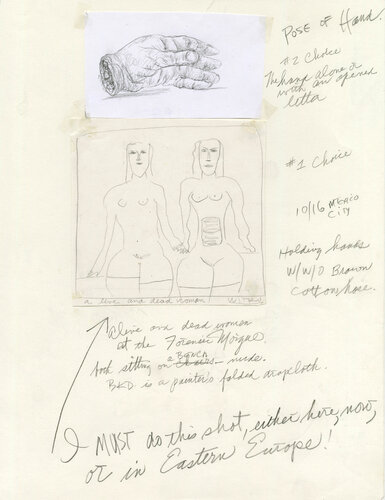 POSE OF Hand.
#2 Choice
The hand alone or
with an opened
letta
#1 Choice
10/16 MEXICO
CITY
Holding hands
W/W/O Brown
Cotton hose.
a live and dead woman
Alive and dead women
at the Forensic Morgue.
both sitting on a BENCH Chairs nude.
BKD is a painter's folded dropcloth.
I MUST do this shot, either here, now,
or in Eastern Europe!